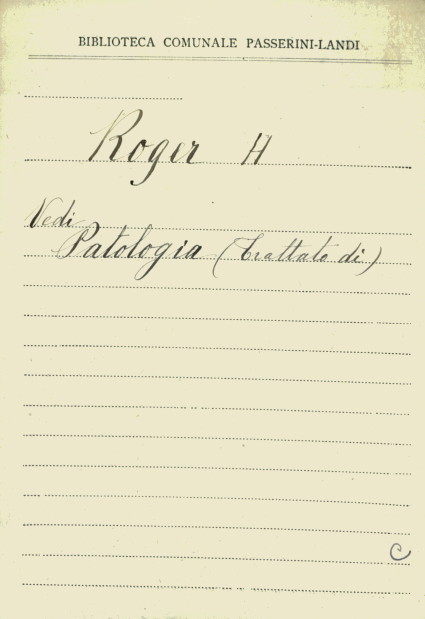 BIBLIOTECA COMUNALE PASSERINI-LANDI
Roger H
Vedi
Patologia (trattato di)
C